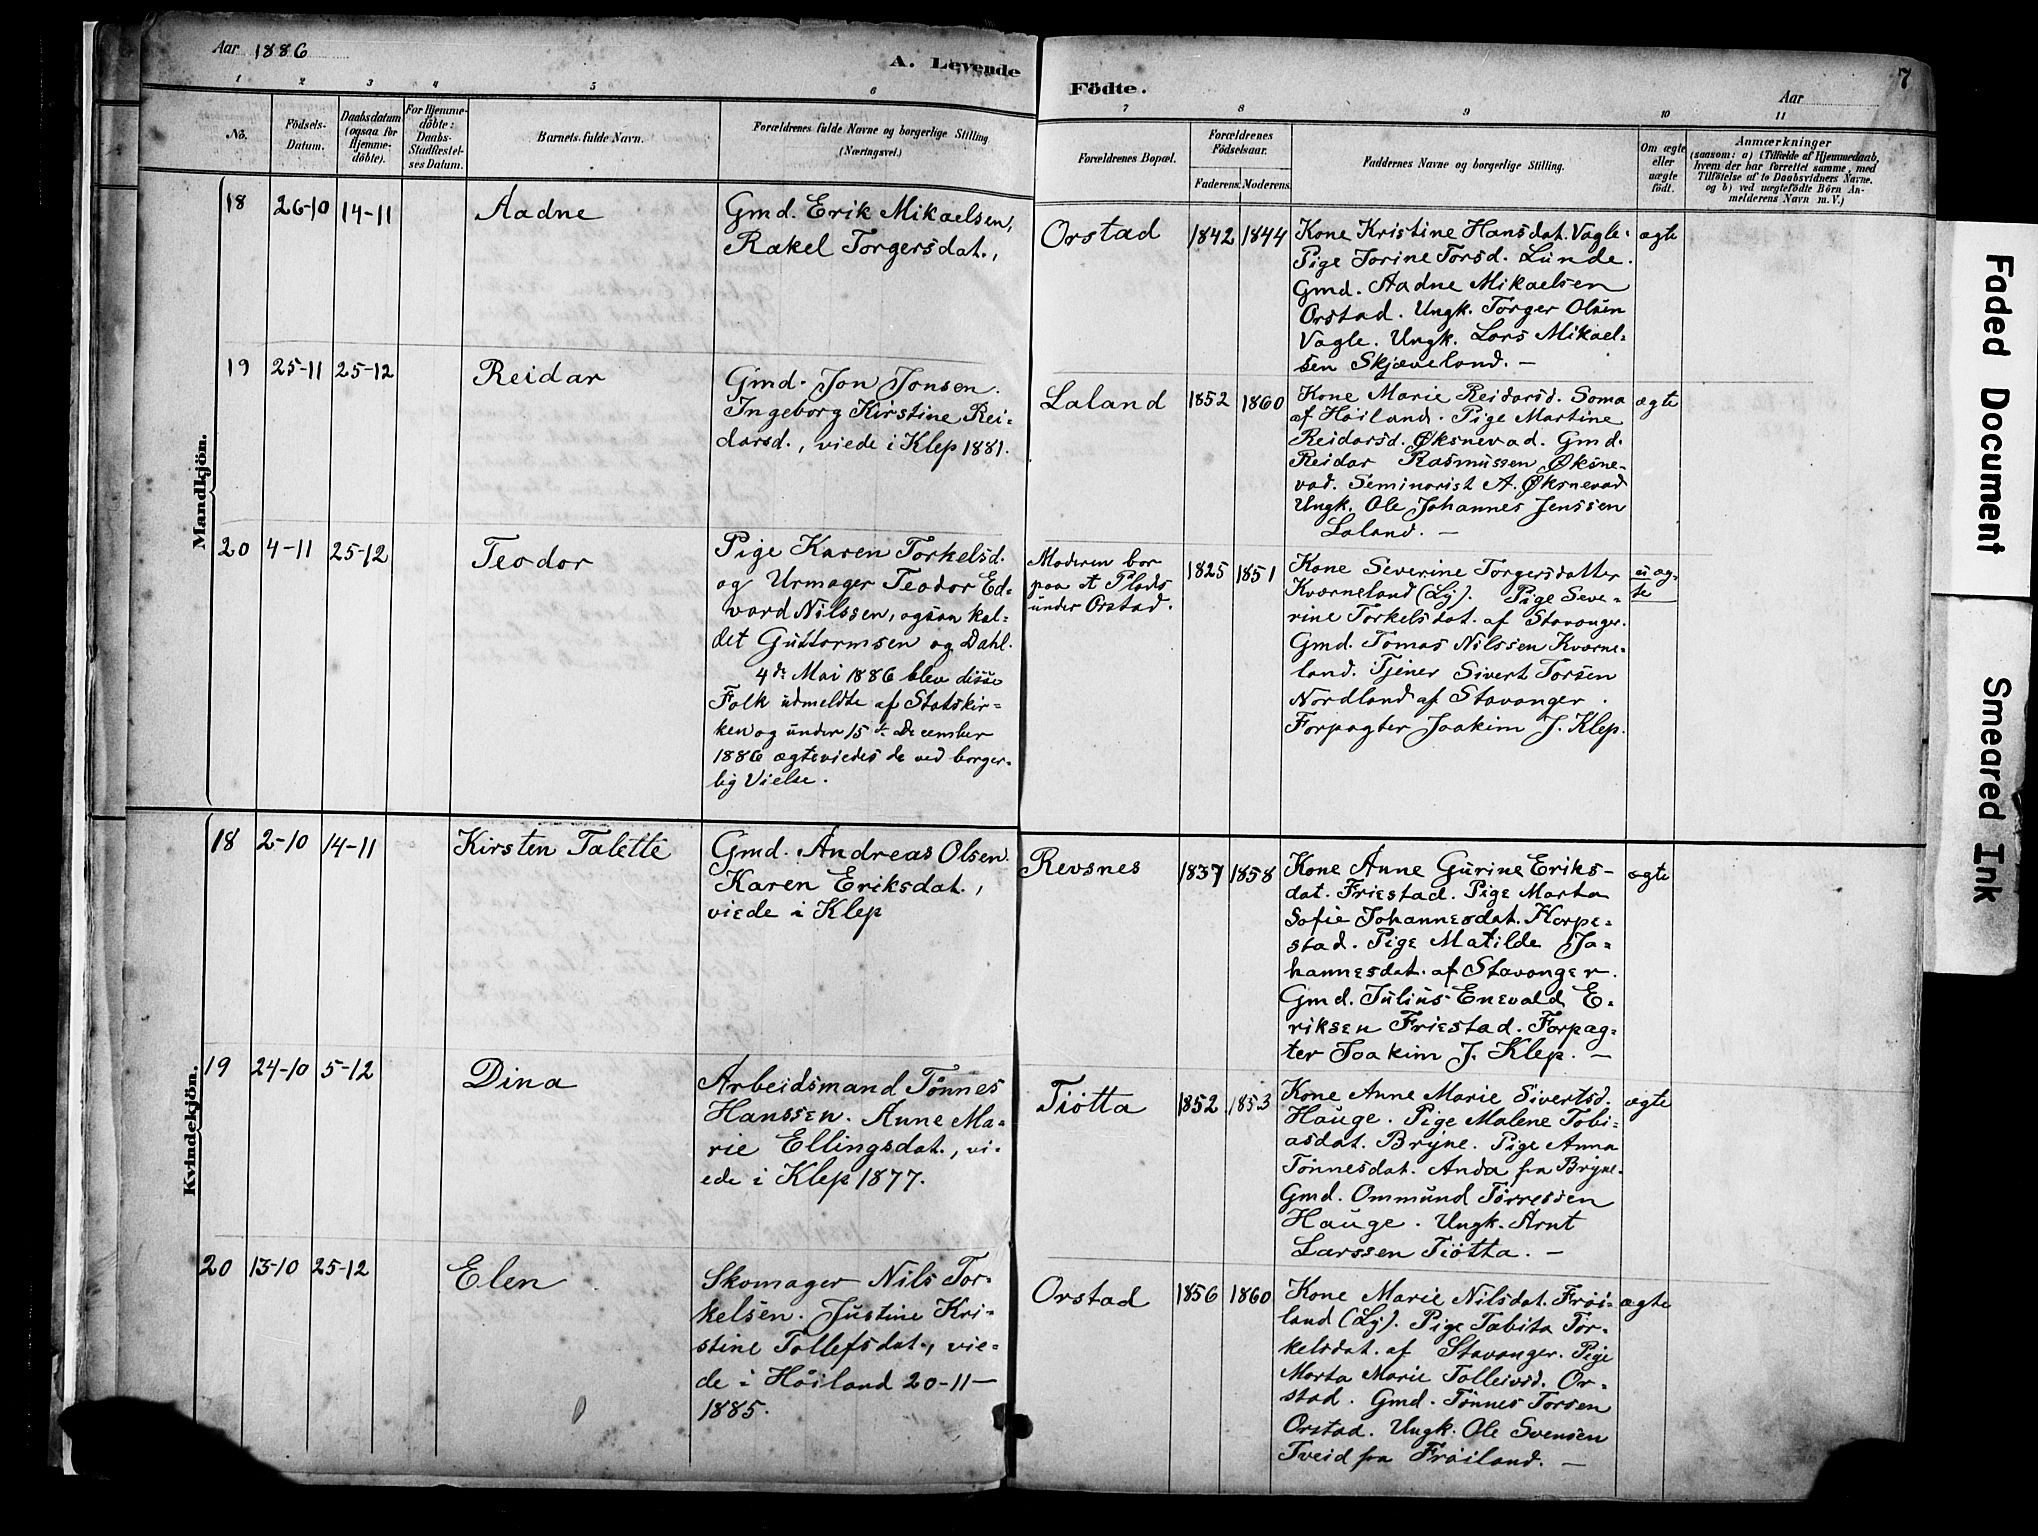 Aar 1886
A. Levende
Födte.
Aar
7
1 2 3 4 5 6
7 8 9 10 11
No.
Födsels-
Datum.
Daabsdatum
(ogsaa for
Hjemme-
döbte).
For Hjemme-
döbte:
Daabs-
Stadfæstel-
ses Datum.
Barnets fulde Navn.
Forældrenes fulde Navne og borgerlige Stilling
(Næringsvei.)
Forældrenes Bopæl.
Forældrenes
Födselsaar.
Faderens. Moderens.
Faddernes Navne og borgerlige Stilling.
Om ægte
eller
uægte
födt.
Anmærkninger
(saasom: a) i Tilfælde af Hjemmedaab,
hvem der har forrettet samme, med
Tilföielse af to Daabsvidners Navne,
og b) ved uægtefödte Börn An-
melderens Navn m. V.)
Mandkjön.
18 26-10 14-11 Aadne
Gmd. Erik Mikaelsen,
Rakel Torgersdat.,
Orstad 1842 1844
Kone Kristine Hansdat. Vagle.
Pige Torine Torsd. Lunde.
Gmd. Aadne Mikaelsen
Orstad. Ungk. Torger Olsen
Vagle. Ungk. Lars Mikael-
sen Skjæveland. —
ægte
19 25-11 25-12 Reidar
Gmd. Jon Jonsen.
Ingeborg Kirstine Rei-
darsd., viede i Klep 1881.
Laland 1852 1860
Kone Marie Reidarsd. Soma
af Høiland. Pige Martine
Reidarsd. Øksnevad. Gmd.
Reidar Rasmussen Øksne-
vad. Seminarist A. Øksnevad
Ungk. Ole Johannes Jenssen
Laland. —
ægte
20 4-11 25-12 Teodor
Pige Karen Torkelsd.
og Urmager Teodor Ed-
vard Nilssen, ogsaa kal-
det Guttormsen og Dahl.
4de Mai 1886 blev disse
Folk udmeldte af Statskir-
ken og under 15de December
1886 ægteviedes de ved borger-
lig Vielse.
Moderen bor
paa et Plads
under Orstad.
1825 1851
Kone Severine Torgersdatter
Kværneland (Lȳ). Pige Seve-
rine Torkelsdat. af Stavanger.
Gmd. Tomas Nilssen Kværne-
land. Tjener Sivert Torsen
Nordland af Stavanger.
Forpagter Joakim J. Klep.
ei æg-
te
Kvindekjön.
18 2-10 14-11 Kirsten Talette
Gmd. Andreas Olsen.
Karen Eriksdat.,
viede i Klep
Revsnes 1837 1858
Kone Anne Gurine Eriks-
dat. Friestad. Pige Marta
Sofie Johannesdat. Horpe-
stad. Pige Matilde Jo-
hannesdat. af Stavanger.
Gmd. Julius Enevald E-
riksen Friestad. Forpag-
ter Joakim J. Klep. —
ægte
19 24-10 5-12 Dina
Arbeidsmand Tønnes
Hanssen. Anne Ma-
rie Ellingsdat., vi-
ede i Klep 1877.
Tiötta 1852 1853
Kone Anne Marie Sivertsd.
Hauge. Pige Malene Tobi-
asdat. Bryne. Pige Anna
Tønnesdat. Anda fra Bryne.
Gmd. Ommund Tørressen
Hauge. Ungk. Arnt
Larssen Tiötta. —
ægte
20 13-10 25-12 Elen
Skomager Nils Tor-
kelsen. Justine Kri-
stine Tollefsdat., vie-
de i Høiland 20-11-
1885.
Orstad 1856 1860
Kone Marie Nilsdat. Frøi-
land (Lȳ). Pige Tabita Tor-
kelsdat. af Stavanger. Pige
Marta Marie Tolleivsd. Or-
stad. Gmd. Tönnes Torsen
Orstad. Ungk. Ole Svensen
Tveid fra Frøiland. —
ægte
Faded Document
Smeared Ink